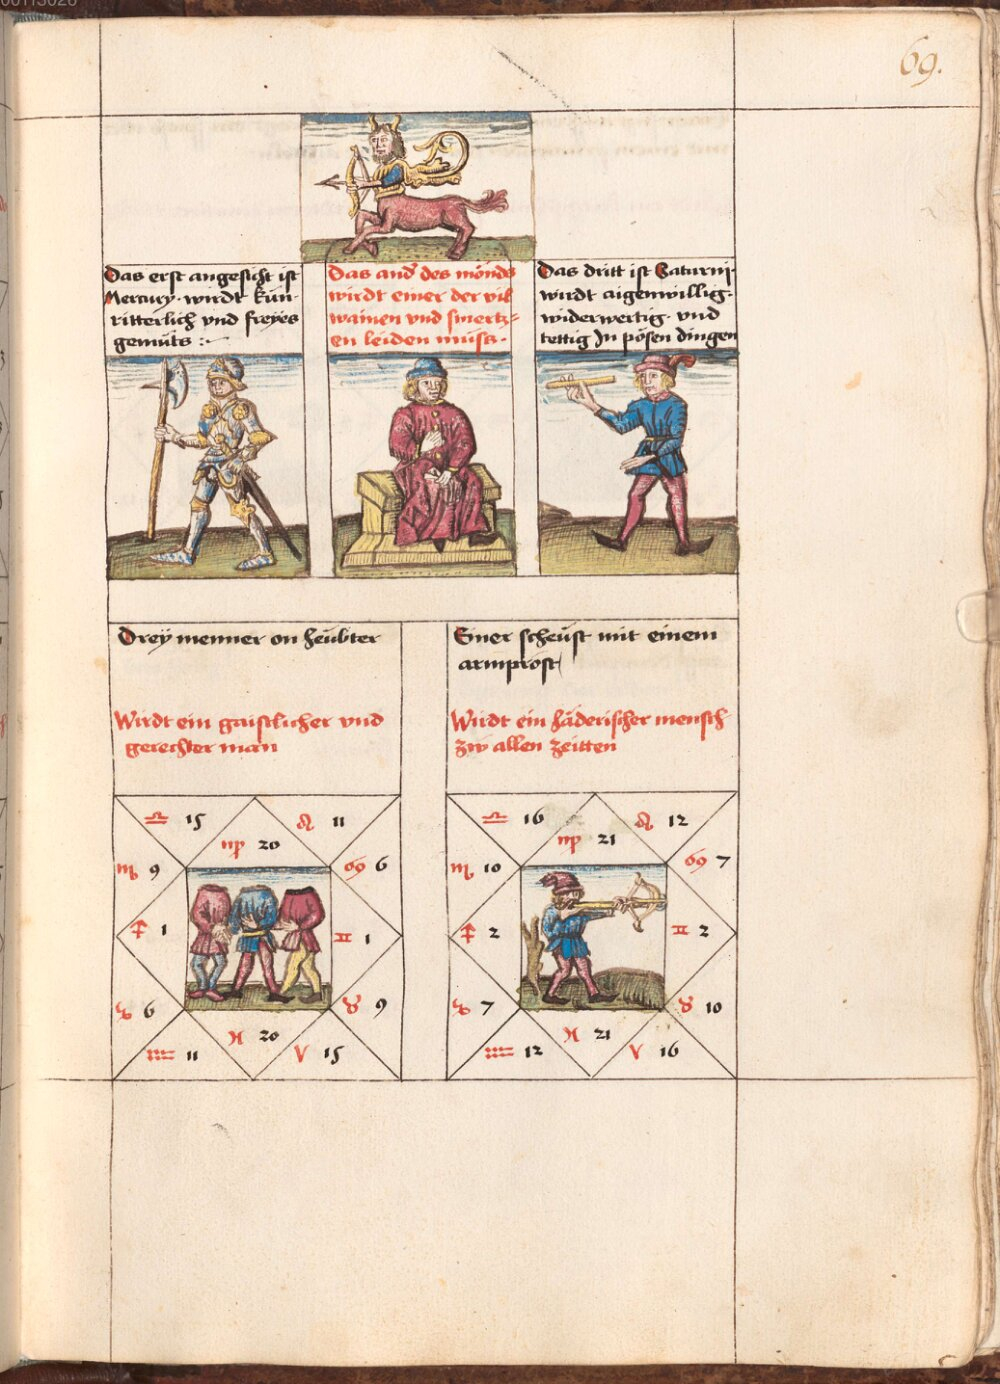 69.
Das erst angesicht ist
Mercury · wirdt kün-
ritterlich vnd freyes
gemüts :~
Das and' des mönds
wirdt einer der vil
wainen vnd smertz=
en leiden muss ·
Das dritt ist Saturni ·
wirdt aigenwillig ·
widerwertig · vnd
tettig In pösen dingen
Drey menner on heübter
Wirdt ein gaistlicher vnd
gerechter man
Einer scheüst mit einem
armprost
Wirdt ein häderischer mensch
zw allen zeitten
♎ 15 ♌ 11
♍ 20
♏ 9 ♋ 6
♐ 1 ♊ 1
♑ 6 ♉ 9
♓ 20
♒ 11 ♈ 15
♎ 16 ♌ 12
♍ 21
♏ 10 ♋ 7
♐ 2 ♊ 2
♑ 7 ♉ 10
♓ 21
♒ 12 ♈ 16